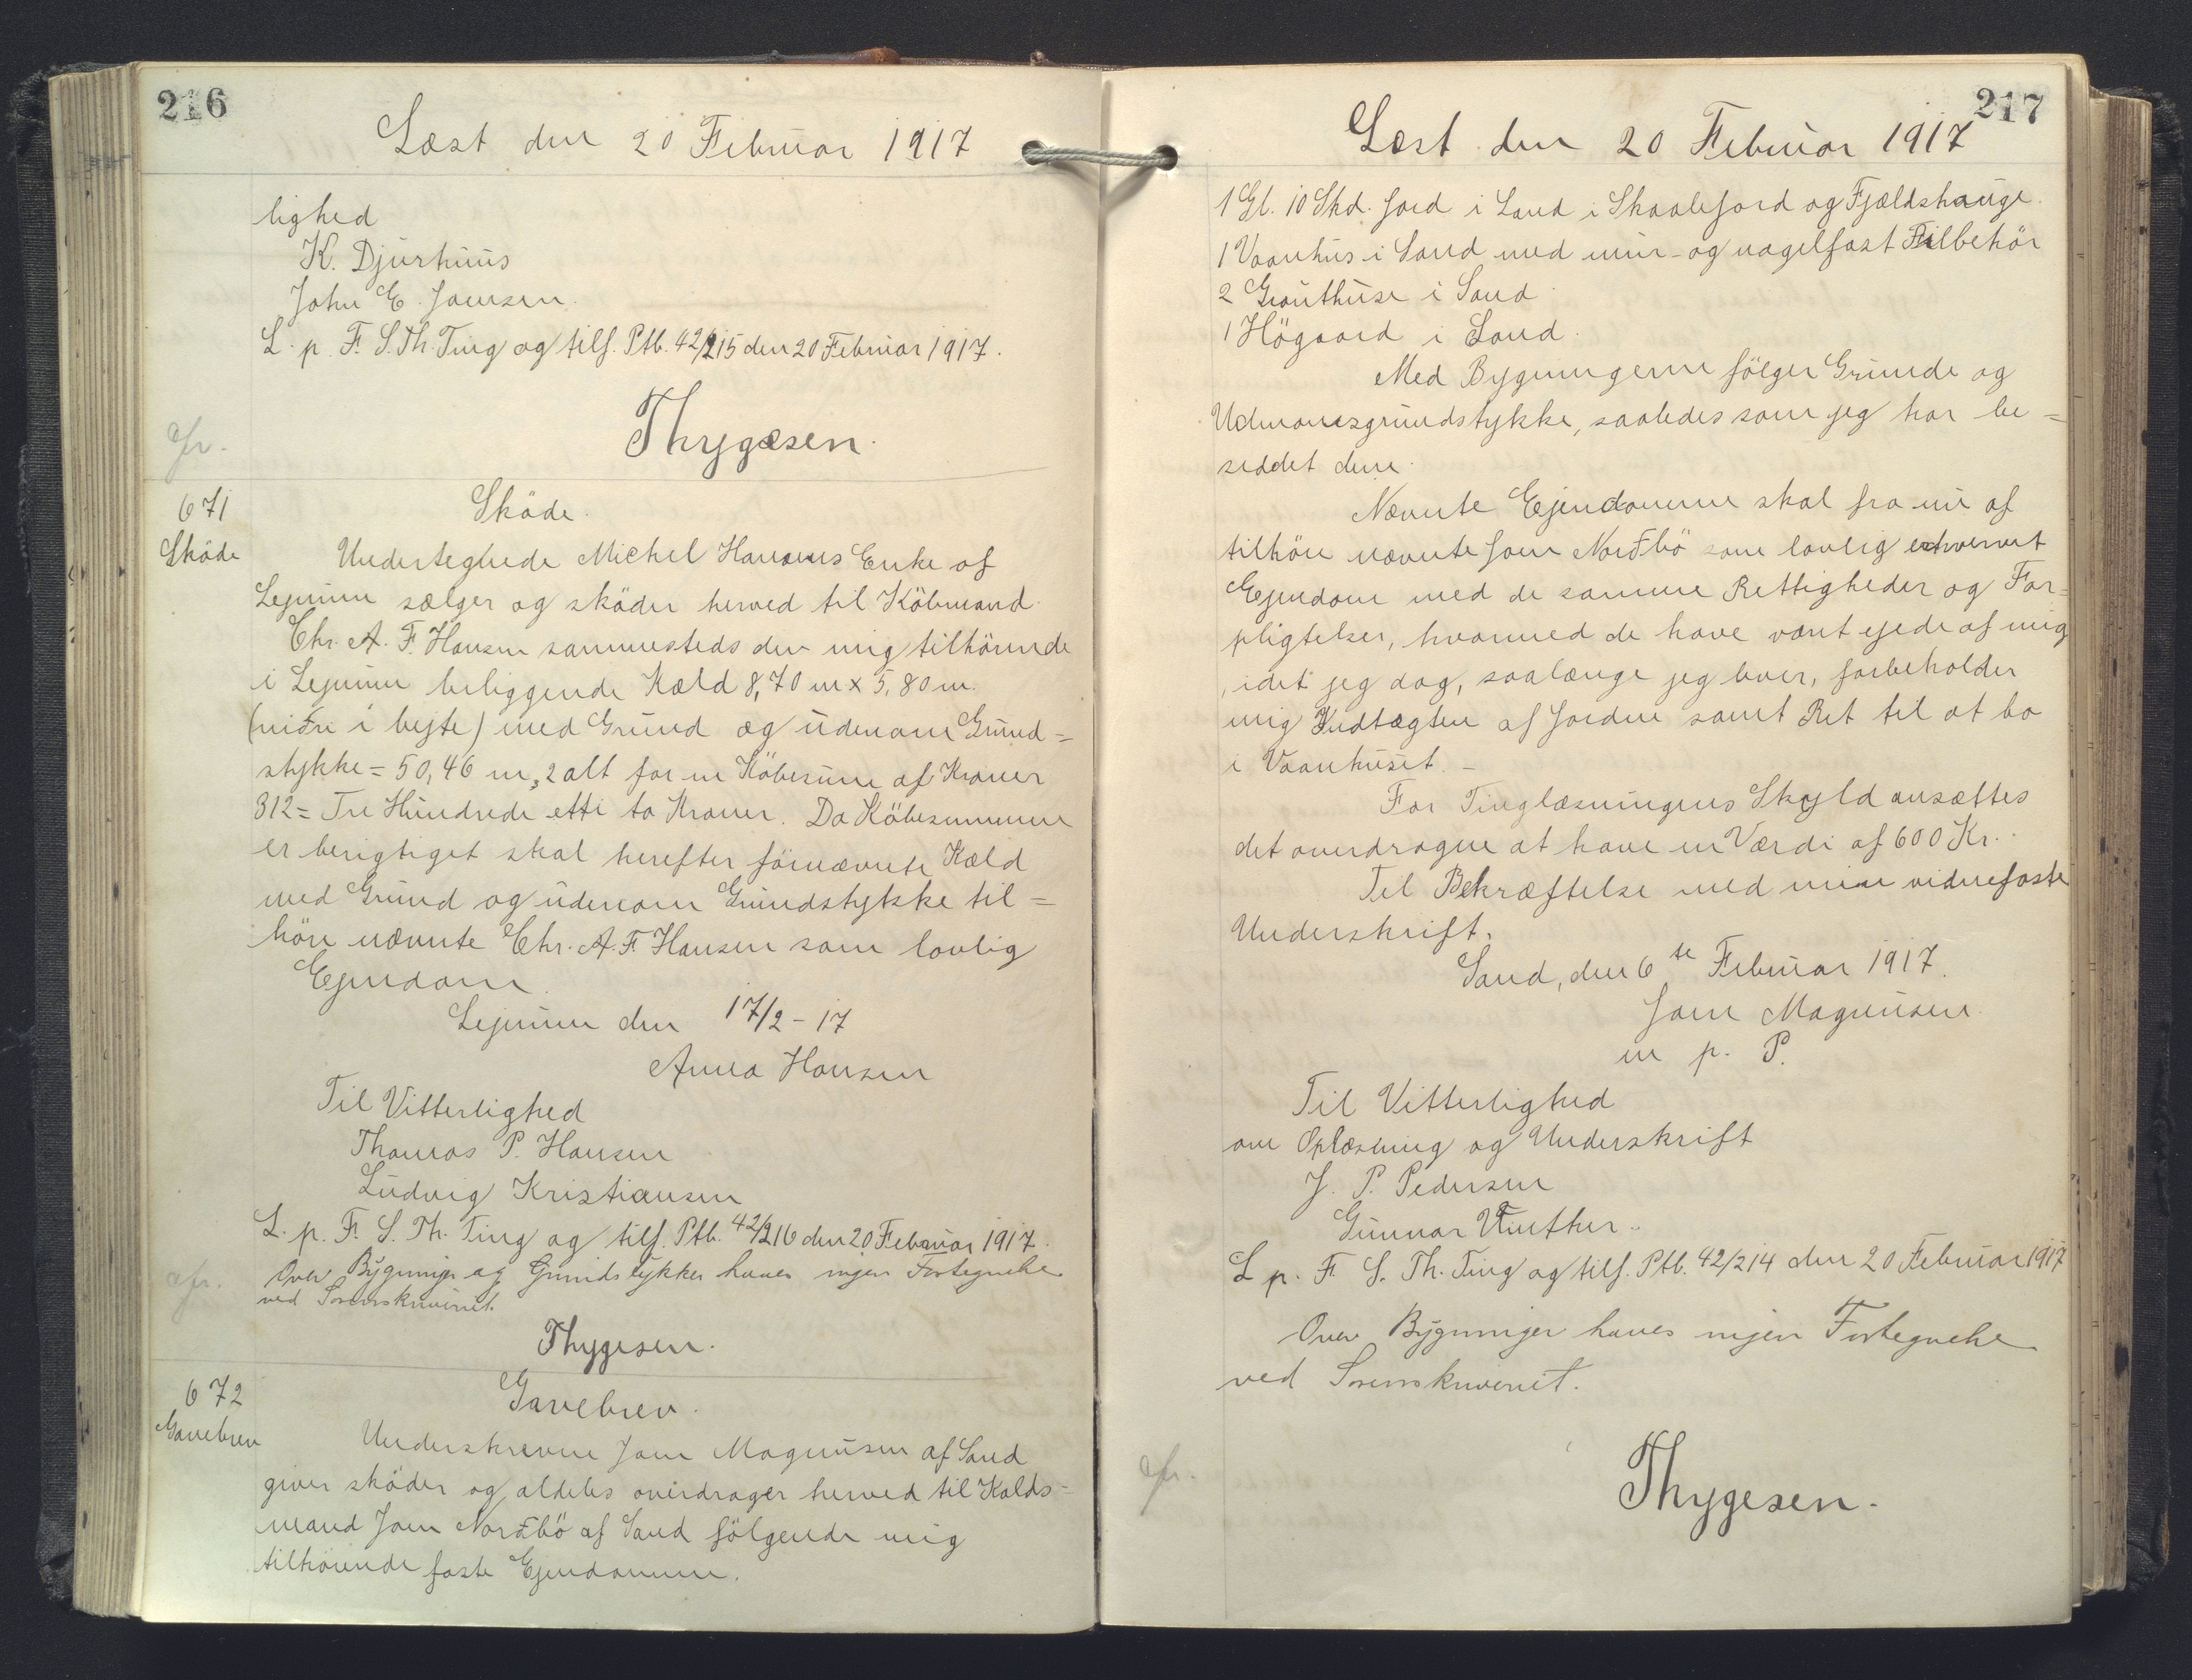 216
Læst den 20 Februar 1917
lighed
K. Djurhuus
John E. Joensen
L. p. F. S. Th. Ting og tilf. Ptb. 42/215 den 20 Februar 1917.
Thygesen.
cfr.
671
Sköde
Sköde.
Undertegnede Michel Hansens Enke af
Lejnum sælger og sköder herved til Köbmand
Chr. A. F. Hansen sammesteds den mig tilhörende
i Lejnum beliggende Kæld 8,70 m x 5,80 m.
(niðri i bejte) med Grund og udenom Grund=
stykke = 50,46 m,2 alt for en Köbesum af Kroner
312 = Tre Hundrede etti to Kroner. Da Köbesummen
er berigtiget skal herefter förnævnte Kæld
med Grund og udenom Grundstykke til=
höre nævnte Chr. A. F. Hansen som lovlig
Ejendom.
Lejnum den 17/2 - 17
Anna Hansen
Til Vitterlighed
Thomas P. Hansen
Ludvig Kristiansen
L. p. F. S. Th. Ting og tilf. Ptb. 42/216 den 20 Februar 1917.
Over Bygninger og Grundstykker haves ingen Fortegnelse
ved Sorenskriveriet.
cfr.
Thygesen.
672
Gavebrev
Gavebrev.
Underskrevne Joen Magnusen af Sand
giver sköder og aldeles overdrager herved til Kolds=
mand Joen Norðbö af Sand fölgende mig
tilhörende faste Ejendomme.
217
Læst den 20 Februar 1917
1 Gl. 10 Skd. Jord i Sand i Skaalefjord og Fjældshauge.
1 Vaanhus i Sand med mur- og nagelfast Tilbehör
2 Grouthuse i Sand
1 Högaard i Sand.
Med Bygningerne fölger Grunde og
Udmonsgrundstykke, saaledes som jeg har be=
siddet dem.
Nævnte Ejendomme skal fra nu af
tilhöre nævnte Joen Norðbö som lovlig erhvervet
Ejendom med de samme Rettigheder og For=
pligtelser, hvormed de have været ejede af mig
, idet jeg dog, saalænge jeg lever, forbeholder
mig Indtægten af Jorden samt Ret til at bo
i Vaanhuset. -
For Tinglæsningens Skyld ansættes
det overdragne at have en Værdi af 600 Kr.
Til Bekræftelse med min vidnefaste
Underskrift.
Sand, den 6te Februar 1917.
Joen Magnusen
m p. P.
Til Vitterlighed
om Oplæsning og Underskrift
J. P. Pedersen
Gunnar Winther.
L p. F. S. Th. Ting og tilf. Ptb. 42/214 den 20 Februar 1917
Over Bygninger haves ingen Fortegnelse
ved Sorenskriveriet.
cfr.
Thygesen.